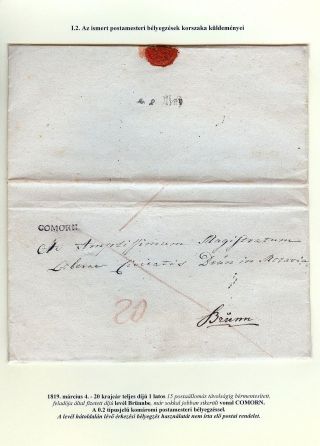 I.2. Az ismert postamesteri bélyegzések korszaka küldeményei
COMORN
Magistratum
Liberae Civitatis in Moravia
20
Brünn
1819. március 4. - 20 krajcár teljes díjú 1 latos 15 postaállomás távolságig bérmentesített,
feladója által fizetett díjú levél Brünnbe, már sokkal jobban sikerült vonal COMORN.
A 0.2 típusjelű komáromi postamesteri bélyegzéssel
A levél hátoldalán lévő érkezési bélyegzés használatát nem írta elő postai rendelet.